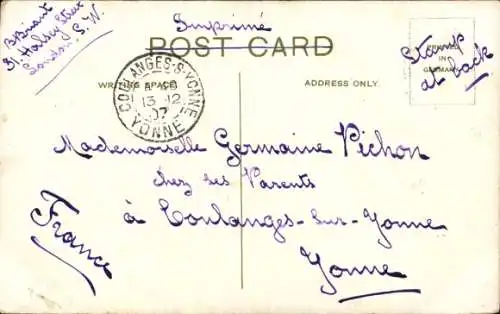 B Briant
31. Halsey Street
London. S. W.
Imprimé
POST CARD
WRITING SPACE
ADDRESS ONLY.
Stamp
at back
COULANGES-S-YONNE
13 12
07
YONNE
Mademoiselle Germaine Pichon
chez ses Parents
à Coulanges-sur-Yonne
Yonne
France